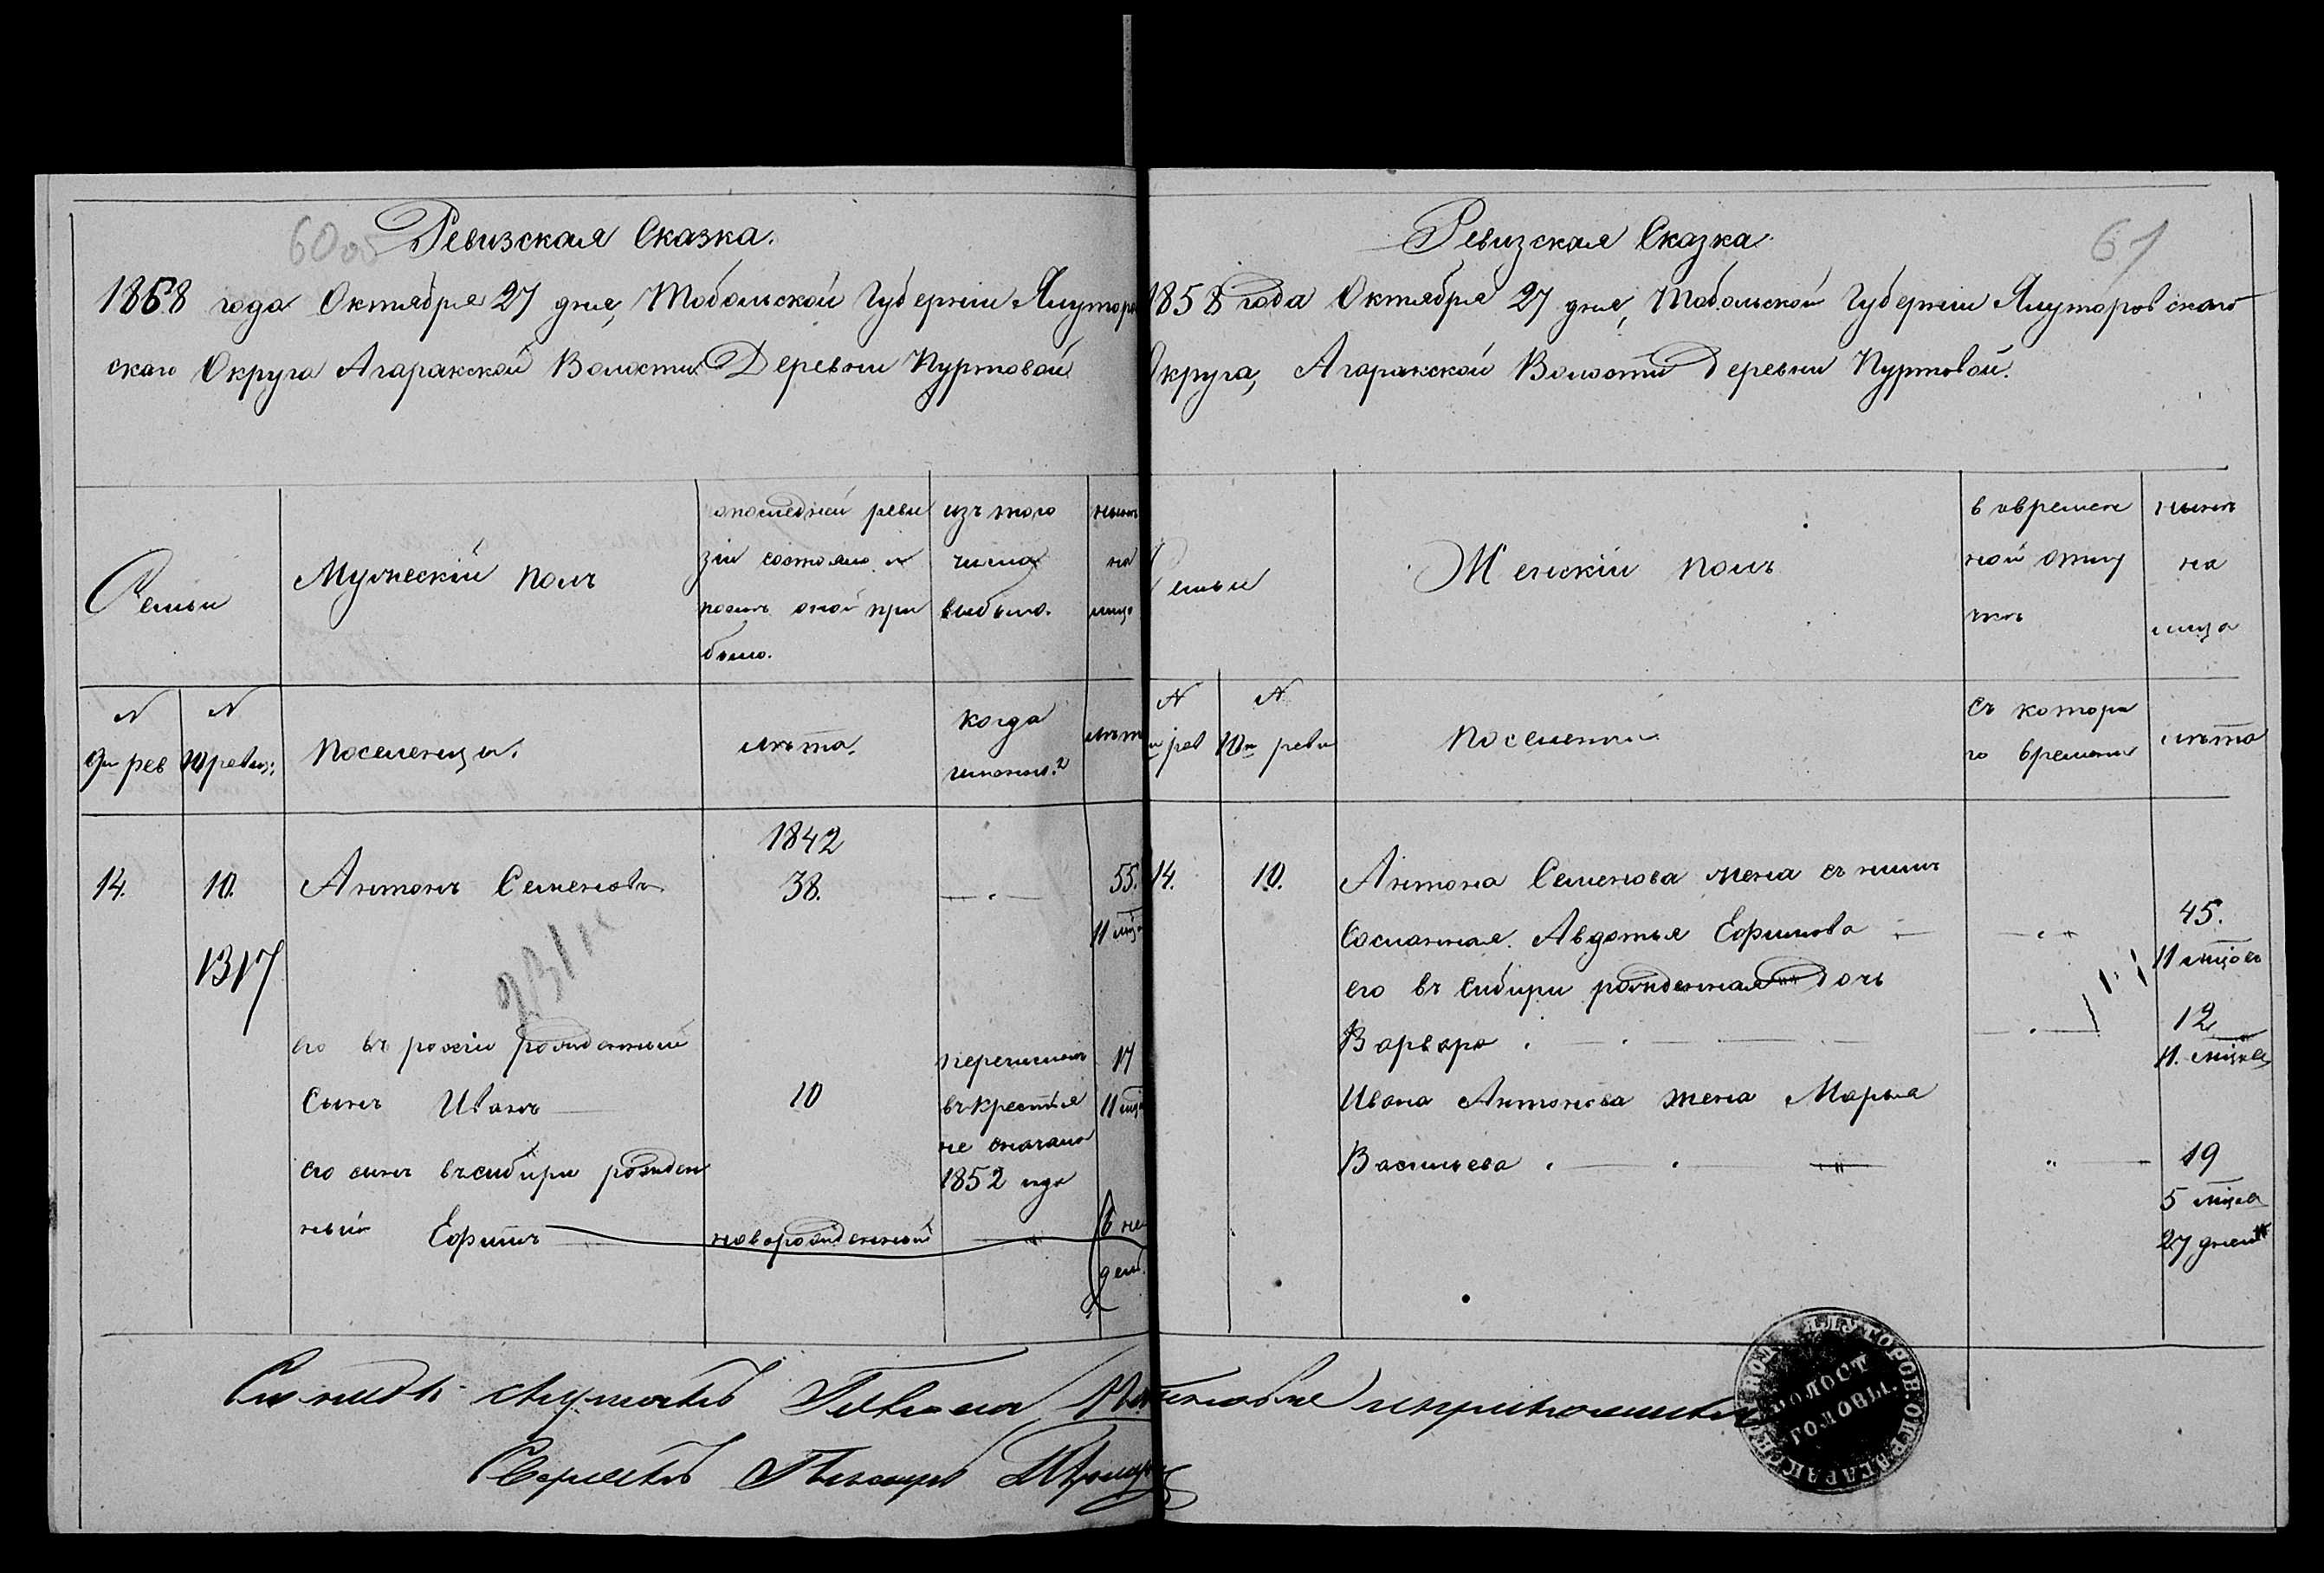 60об
Ревизская Сказка.
1858 года Октября 27 дня, Тобольской Губернии Ялуторов
скаго Округа Агаракской Волости Деревни Пуртовой
Семьи
Мужескій полъ
опоследней реви
зіи состояло и
послѣ оной при
было.
изъ того
числа
выбыло.
нынѣ
на
лицо
N
9й рев
N
10 ревиз:
Поселенцы.
лѣта.
когда
лѣт
1842
14.
10.
Антонъ Семеновъ
38.
55.
11 мѣ
1317
его въ росіи рожденный
сынъ Иванъ
10
перечисленъ
въ крестья
не сначала
1852 года
17
11 мѣ
его сынъ въ сибири рожден
ный Ефимъ
новорожденный
6 не
дель
61
Ревизская Сказка.
1858 года Октября 27 дня, Тобольской Губерніи Ялуторовскаго
Округа, Агаракской Волости Деревни Пуртовой.
Семьи
Женскій полъ
вовремен
ной отлу
чкѣ
нынѣ
на
лицо
N
рев
N
10й реви
Поселенки
Съ котора
го времени
лѣта
14.
10.
Антона Семенова жена съ нимъ
Сосланная Авдотья Ефимова
45.
11 мѣцовъ
его въ сибири рожденная дочь
Варвара
12
11. мѣцовъ
Ивана Антонова жена Марья
Васильева
19
5 мѣцов
27 дней
ЯЛУТОРОВ: ОКР: АГАРАКСКОЙ ВОЛ:
ВОЛОСТ
ГОЛОВЫ.